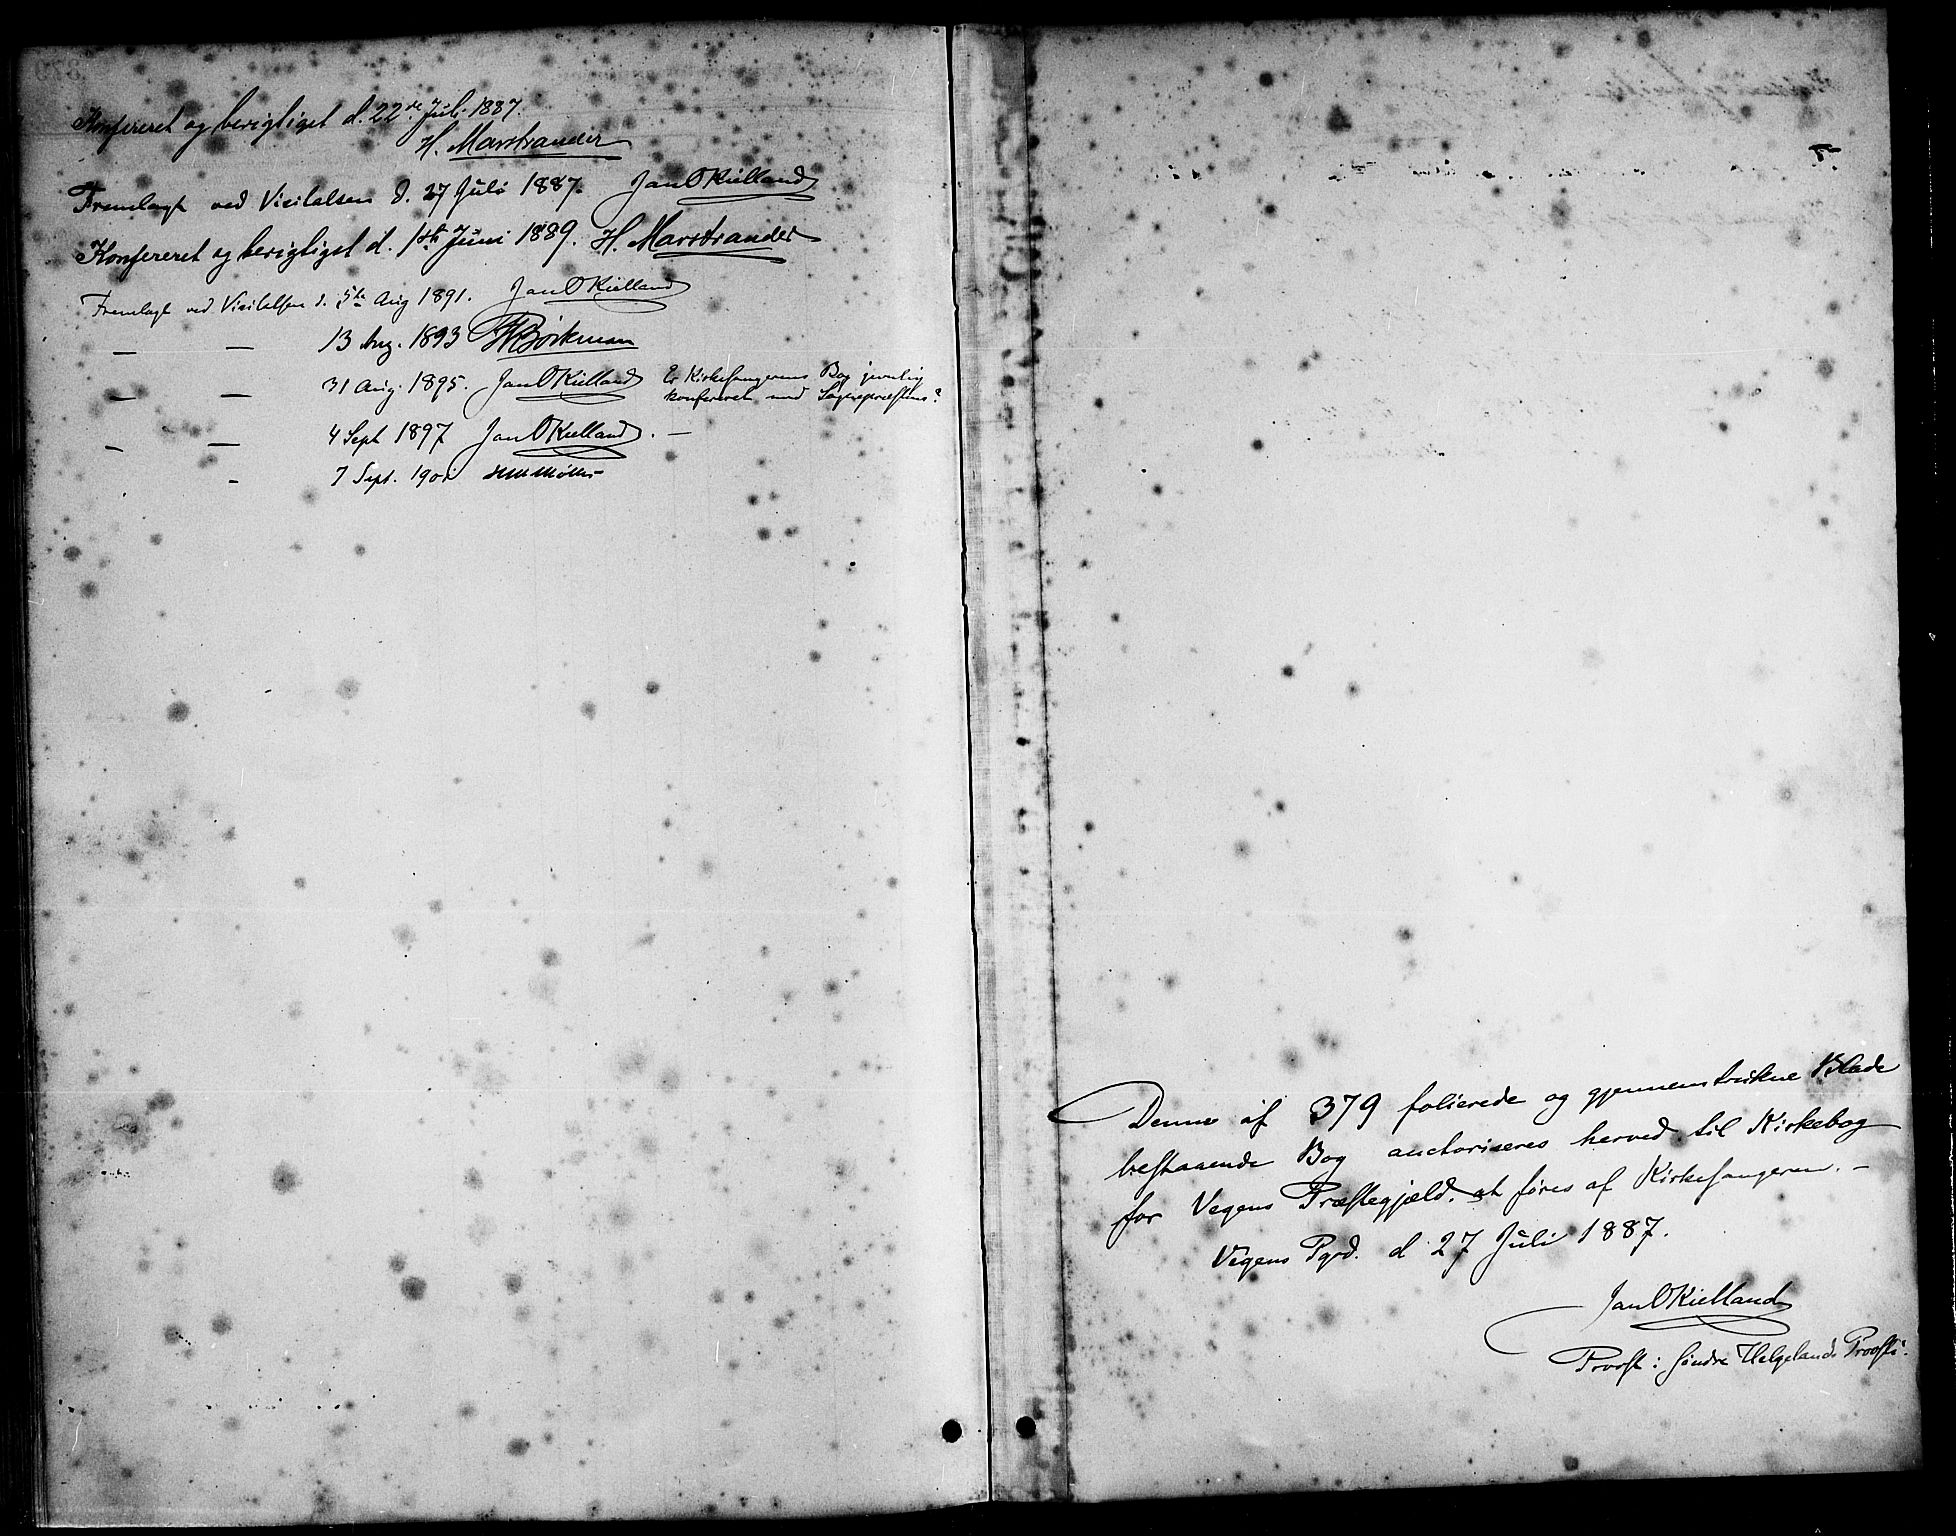 Konfereret og berigtiget d. 22de Juli 1887.
H. Marstrander
Fremlagt ved Visitatsen d. 27 Juli 1887. Jan O Kielland
Konfereret og berigtiget d. 1ste Juni 1889. H. Marstrander
Fremlagt ved Visitatsen d. 5te Aug 1891. Jan O Kielland
— — 13 Aug. 1893 Bøckman
— — 31 Aug. 1895. Jan O Kielland Er Kirkesangerens Bog jevnlig
konfereret med Sognepræstens?
— — 4 Sept 1897 Jan O Kielland. —
- 7 Sept. 1901
Denne af 379 folierede og gjennemtrukne Blade
bestaaende Bog auctoriseres herved til Kirkebog
for Vegens Præstegjæld. at føres af Kirkesangeren. –
Vegens Pgd. d 27 Juli 1887.
Jan O Kielland
Provst i søndre Helgelands Provsti.